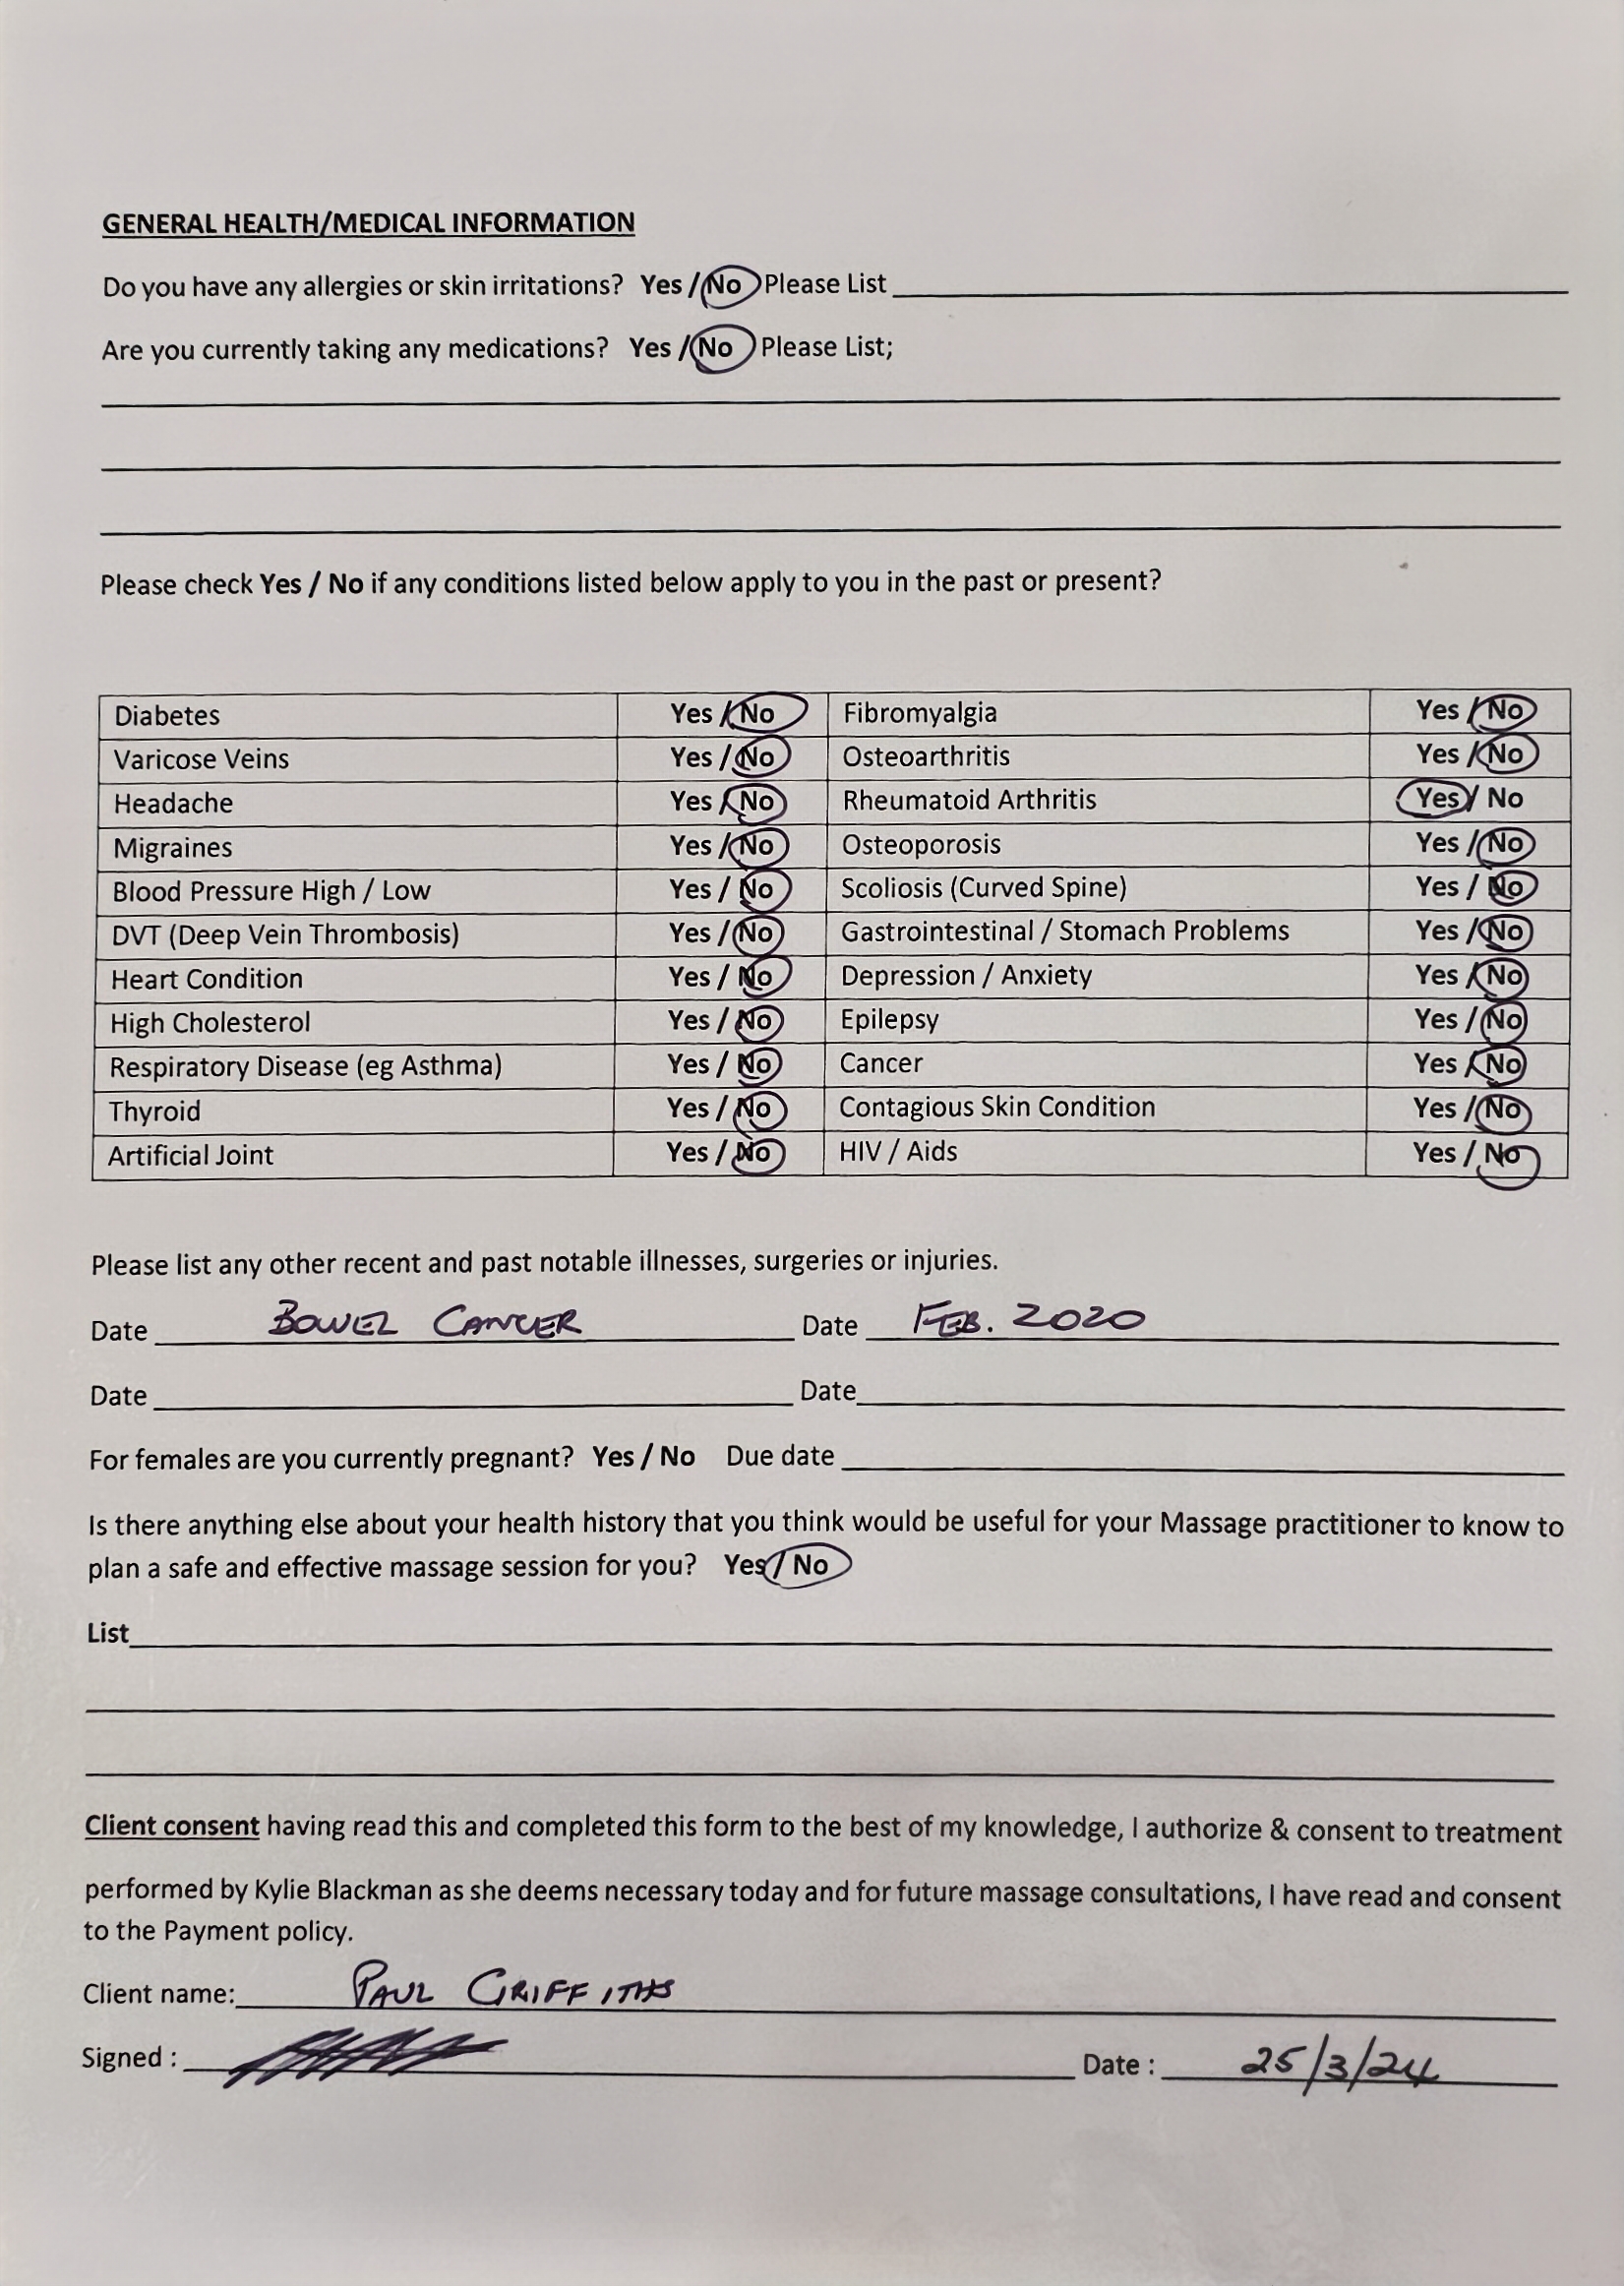 GENERAL HEALTH/MEDICAL INFORMATION
Do you have any allergies or skin irritations? Yes / No Please List
Are you currently taking any medications? Yes / No Please List;
Please check Yes / No if any conditions listed below apply to you in the past or present?
Diabetes Yes / No Fibromyalgia Yes / No
Varicose Veins Yes / No Osteoarthritis Yes / No
Headache Yes / No Rheumatoid Arthritis Yes / No
Migraines Yes / No Osteoporosis Yes / No
Blood Pressure High / Low Yes / No Scoliosis (Curved Spine) Yes / No
DVT (Deep Vein Thrombosis) Yes / No Gastrointestinal / Stomach Problems Yes / No
Heart Condition Yes / No Depression / Anxiety Yes / No
High Cholesterol Yes / No Epilepsy Yes / No
Respiratory Disease (eg Asthma) Yes / No Cancer Yes / No
Thyroid Yes / No Contagious Skin Condition Yes / No
Artificial Joint Yes / No HIV / Aids Yes / No
Please list any other recent and past notable illnesses, surgeries or injuries.
Date BOWEL CANCER Date FEB. 2020
Date Date
For females are you currently pregnant? Yes / No Due date
Is there anything else about your health history that you think would be useful for your Massage practitioner to know to
plan a safe and effective massage session for you? Yes / No
List
Client consent having read this and completed this form to the best of my knowledge, I authorize & consent to treatment
performed by Kylie Blackman as she deems necessary today and for future massage consultations, I have read and consent
to the Payment policy.
Client name: PAUL GRIFFITHS
Signed : Date : 25/3/24